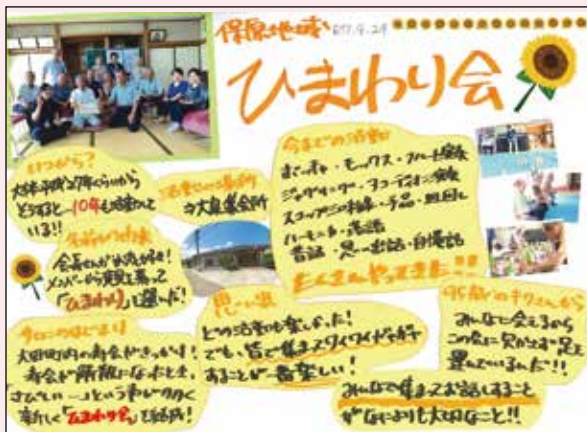 保原地域
R7.9.29
ひまわり会
いつから?
大体平成27年くらいから
そうすると…10年も活動して
いる!!
活動の場所
大泉集会所
会長さんがお花好き!
メンバーから意見を募って
「ひまわり」を選んだ!
サロンのはじまり
大田町内の寿会がきっかけ!
寿会が解散になったとき、
「さびしい…」というわけで
新しく「ひまわり会」を結成!
今までの活動
ボッチャ・モルック・フルート演奏
ジャグリング・アコーディオン演奏
スコップ三味線・手品・皿回し
ハーモニカ・落語
昔話・思い出話・自慢話
たくさんやってきた!!
思い出
どの活動も楽しかった!
でも、皆で集まってワイワイガヤガヤ
することが一番楽しい!
95歳のキクさんが
みんなに会えるから
この会に欠かさず足を
運んでいるんだ!!
みんなで集まってお話しすること
がなによりも大切なこと!!